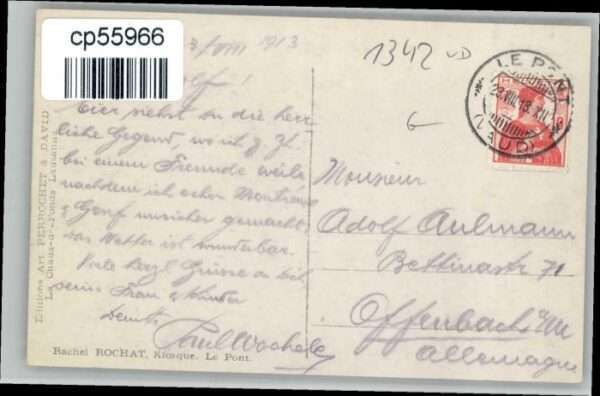 cp55966
1913
1342 VD
LE PONT
23.VIII.13.XII
(VAUD)
HELVETIA
Hier siehst du die herr-
liche Gegend, wo ich z. Zt.
bei einem Freunde weile
nachdem ich schon Montreux
& Genf unsicher gemacht.
Das Wetter ist wunderbar.
Viele herzl. Grüsse an dich
deine Frau & Kinder
Monsieur
Adolf Aulmann
Bettinastr 71
Offenbach a/M
Allemagne
Editions Art. PERROCHET & DAVID
La Chaux-de-Fonds Lausanne
Rachel ROCHAT, Kiosque, Le Pont.